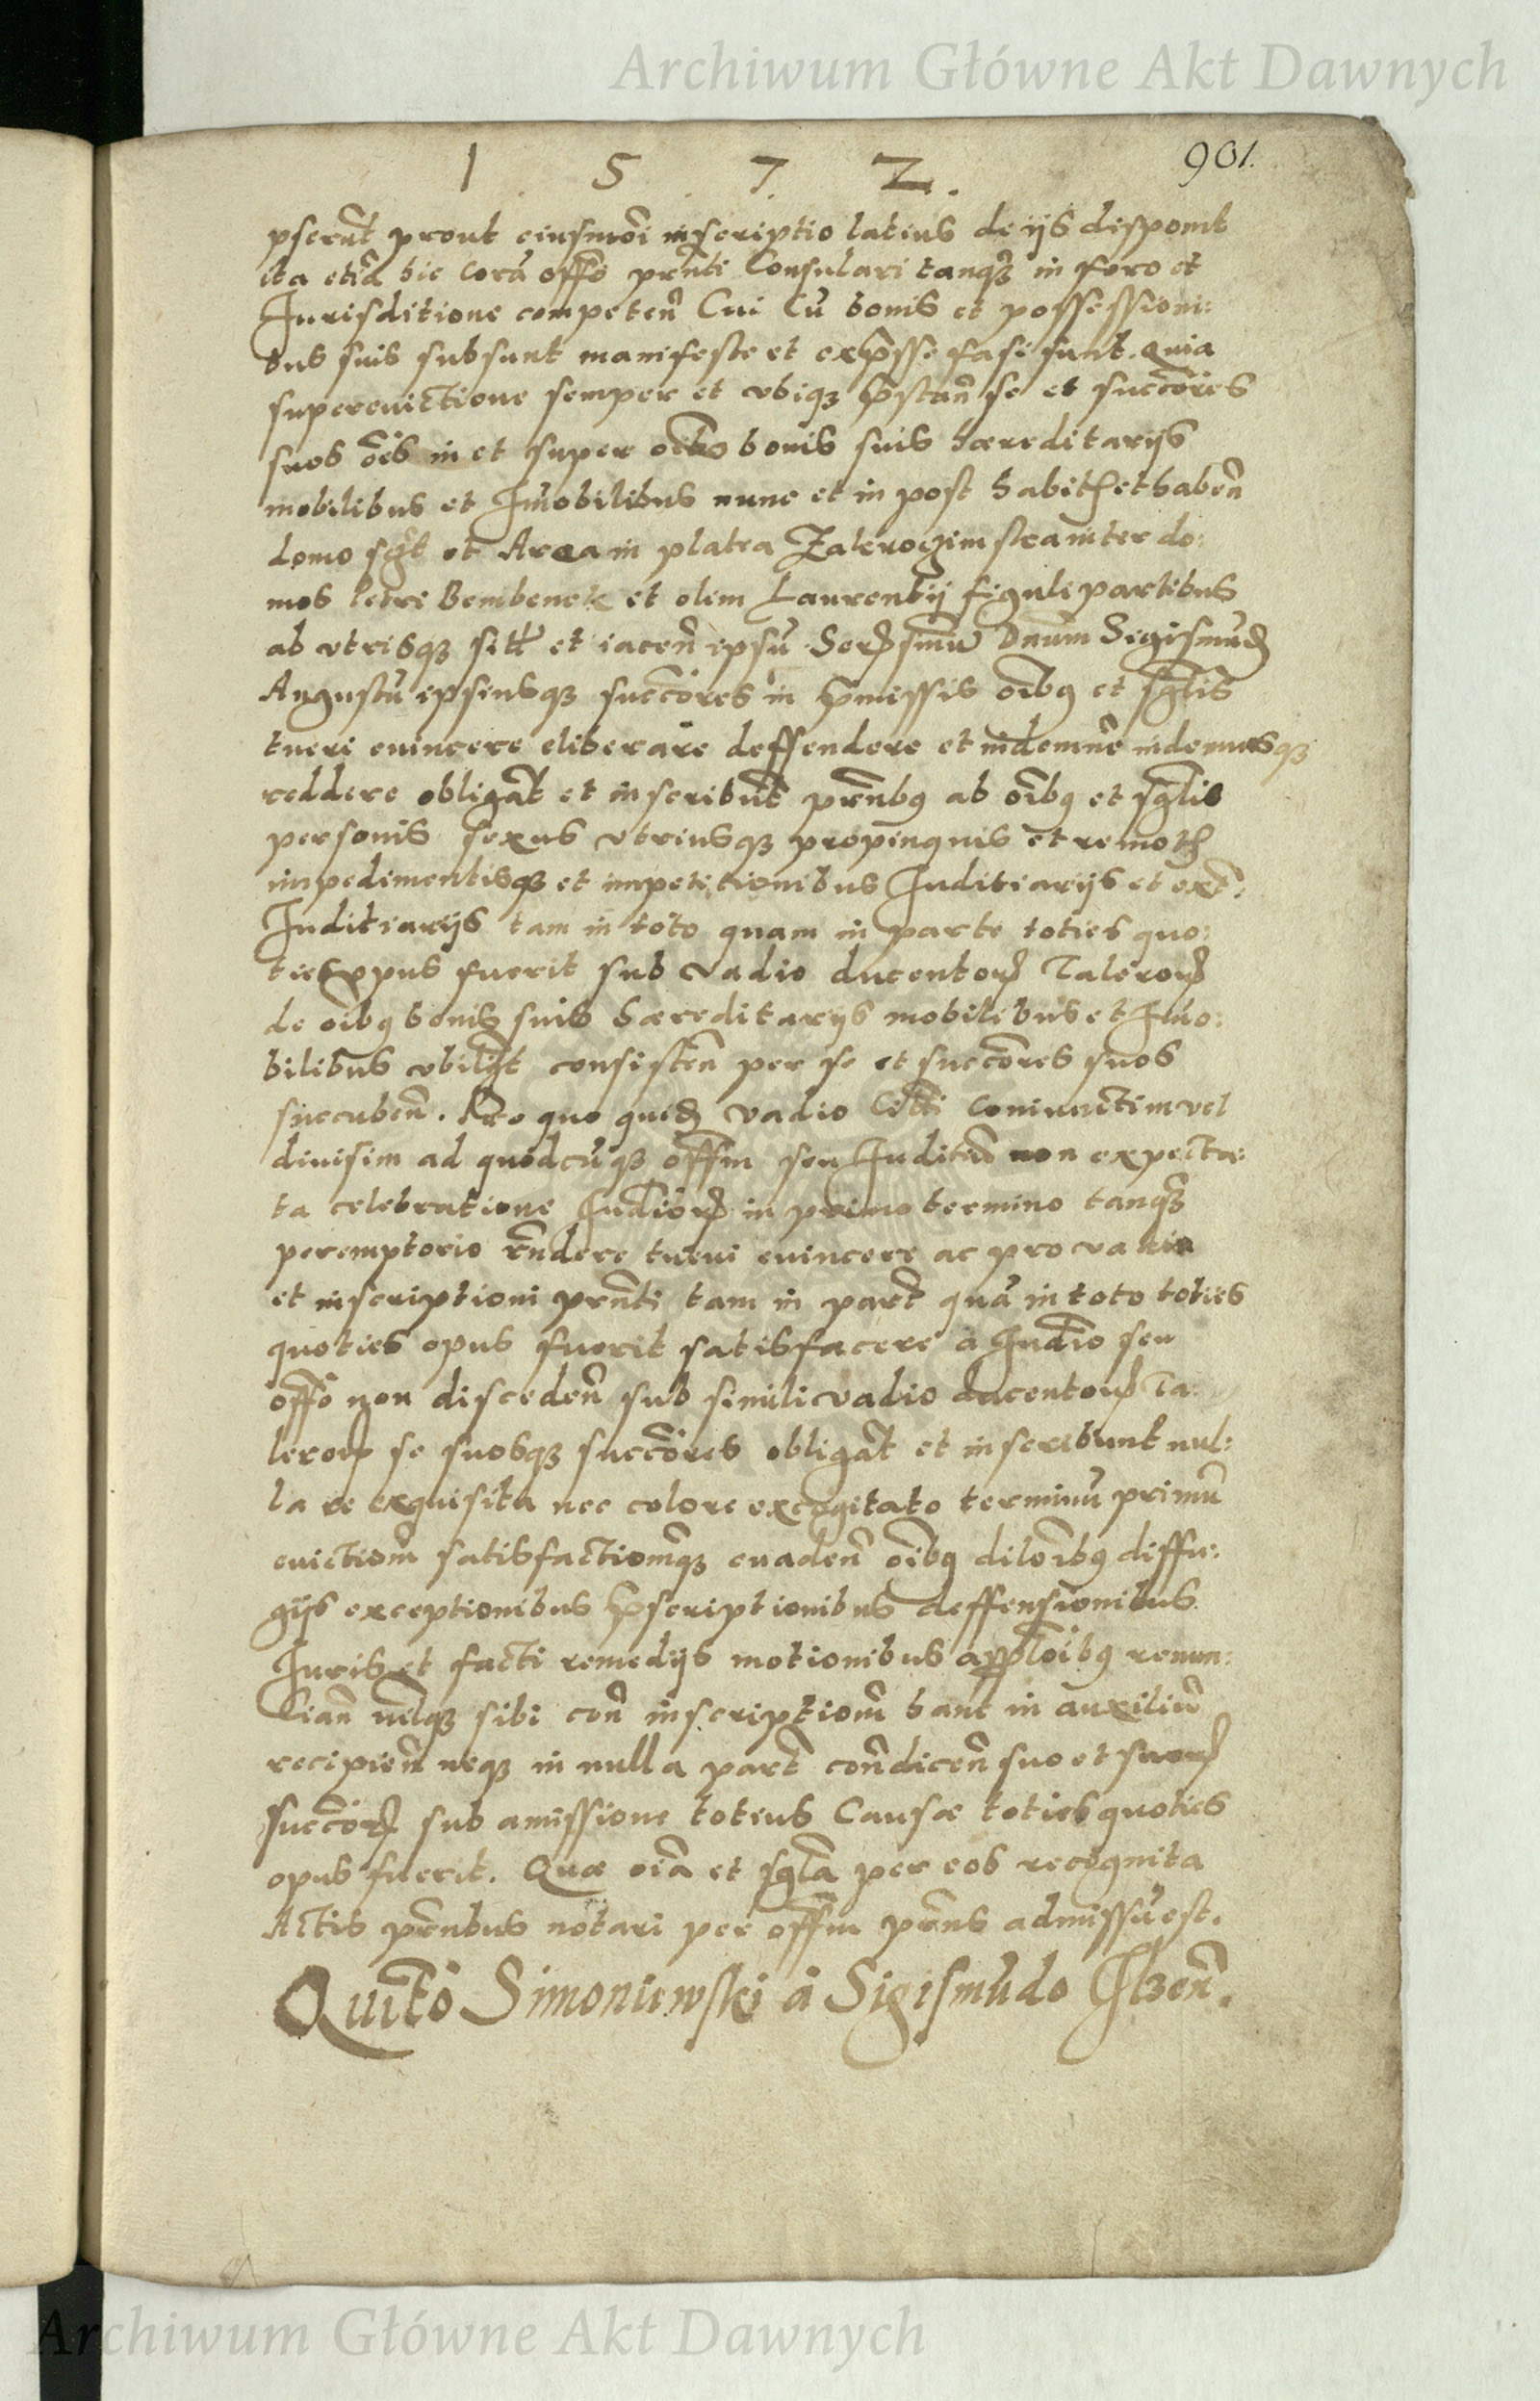 Archiwum Główne Akt Dawnych
1 5 7 2.
901.
pserūt prout eiusmōi inscriptio latius de ijs disponit
ita etiā hic corā offō prn̄ti Consulari tanqȝ in foro et
Jurisditione competen̄ Cui Cū bonis et possessioni:
bus suis subsunt manifeste et exp̄sse fasi sunt. Quia
superevictione semper et vbiqȝ p̄stan̄ se et succōres
suos ōes in et super oībs bonis suis hæreditarijs
mobilibus et Im̄obilibus nunc et in post habit et haben̄
domo et Area in platea inter do:
mos Petri Bembenek et olim Laurentij figuli partibus
ab vtrisqȝ sitt et iacen̄ ipsū Ser smū Dnūm Sigismūd
Augustū ipsiusqȝ succōres in p̄missis oībꝯ et sglīs
tueri euincere eliberare deffendere et indemnē indemnesqȝ
reddere obligāt et inscribūt prn̄tibꝯ ab oībꝯ et sglīs
personis sexus vtriusqȝ propinquis et remot
impedimentisqȝ et impetitionibus Juditiarijs et ext̄:
Juditiarijs tam in toto quam in parte toties quo:
ties opus fuerit sub vadio ducentoꝝ Taleroꝝ
de oībꝯ bonis suis hæreditarijs mobilibus et Im̄o:
bilibus vbilt consisten̄ per se et succōres suos
succuben̄. Pro quo vadio Citti coniunctim vel
diuisim ad quodcūqȝ offm̄ seu Juditiū non expecta:
ta celebratione Judiōꝝ in primo termino tanqȝ
peremptorio rn̄dere tueri euincere ac pro vadio
et inscriptioni prn̄ti tam in part̄ quā in toto toties
quoties opus fuerit satisfacere a Judīo seu
offō non disceden̄ sub simili vadio ducentoꝝ Ta:
leroꝝ se suosqȝ succōres obligāt et inscribunt nul:
la re exquisita nec colore excogitato terminū primū
euictiom̄ satisfactiom̄qȝ euaden̄ oībꝯ dilon̄ibꝯ diffu:
gijs exceptionibus p̄scriptionibus deffensionibus
Juris et facti remedijs motionibus appl̄oibꝯ renun:
cian̄ sibi con̄ inscriptiom̄ hanc in auxiliū
recipien̄ neqȝ in nulla part̄ con̄dicen̄ suo et suoꝝ
succōꝝ sub amissione totius Causæ toties quoties
opus fuerit. Quæ oīa et sglā per eos recognita
Actis prn̄tibus notari per offm̄ prn̄s admissū est.
Quit̄o Simoniewski à Sigismūdo Ilzen̄.
Archiwum Główne Akt Dawnych